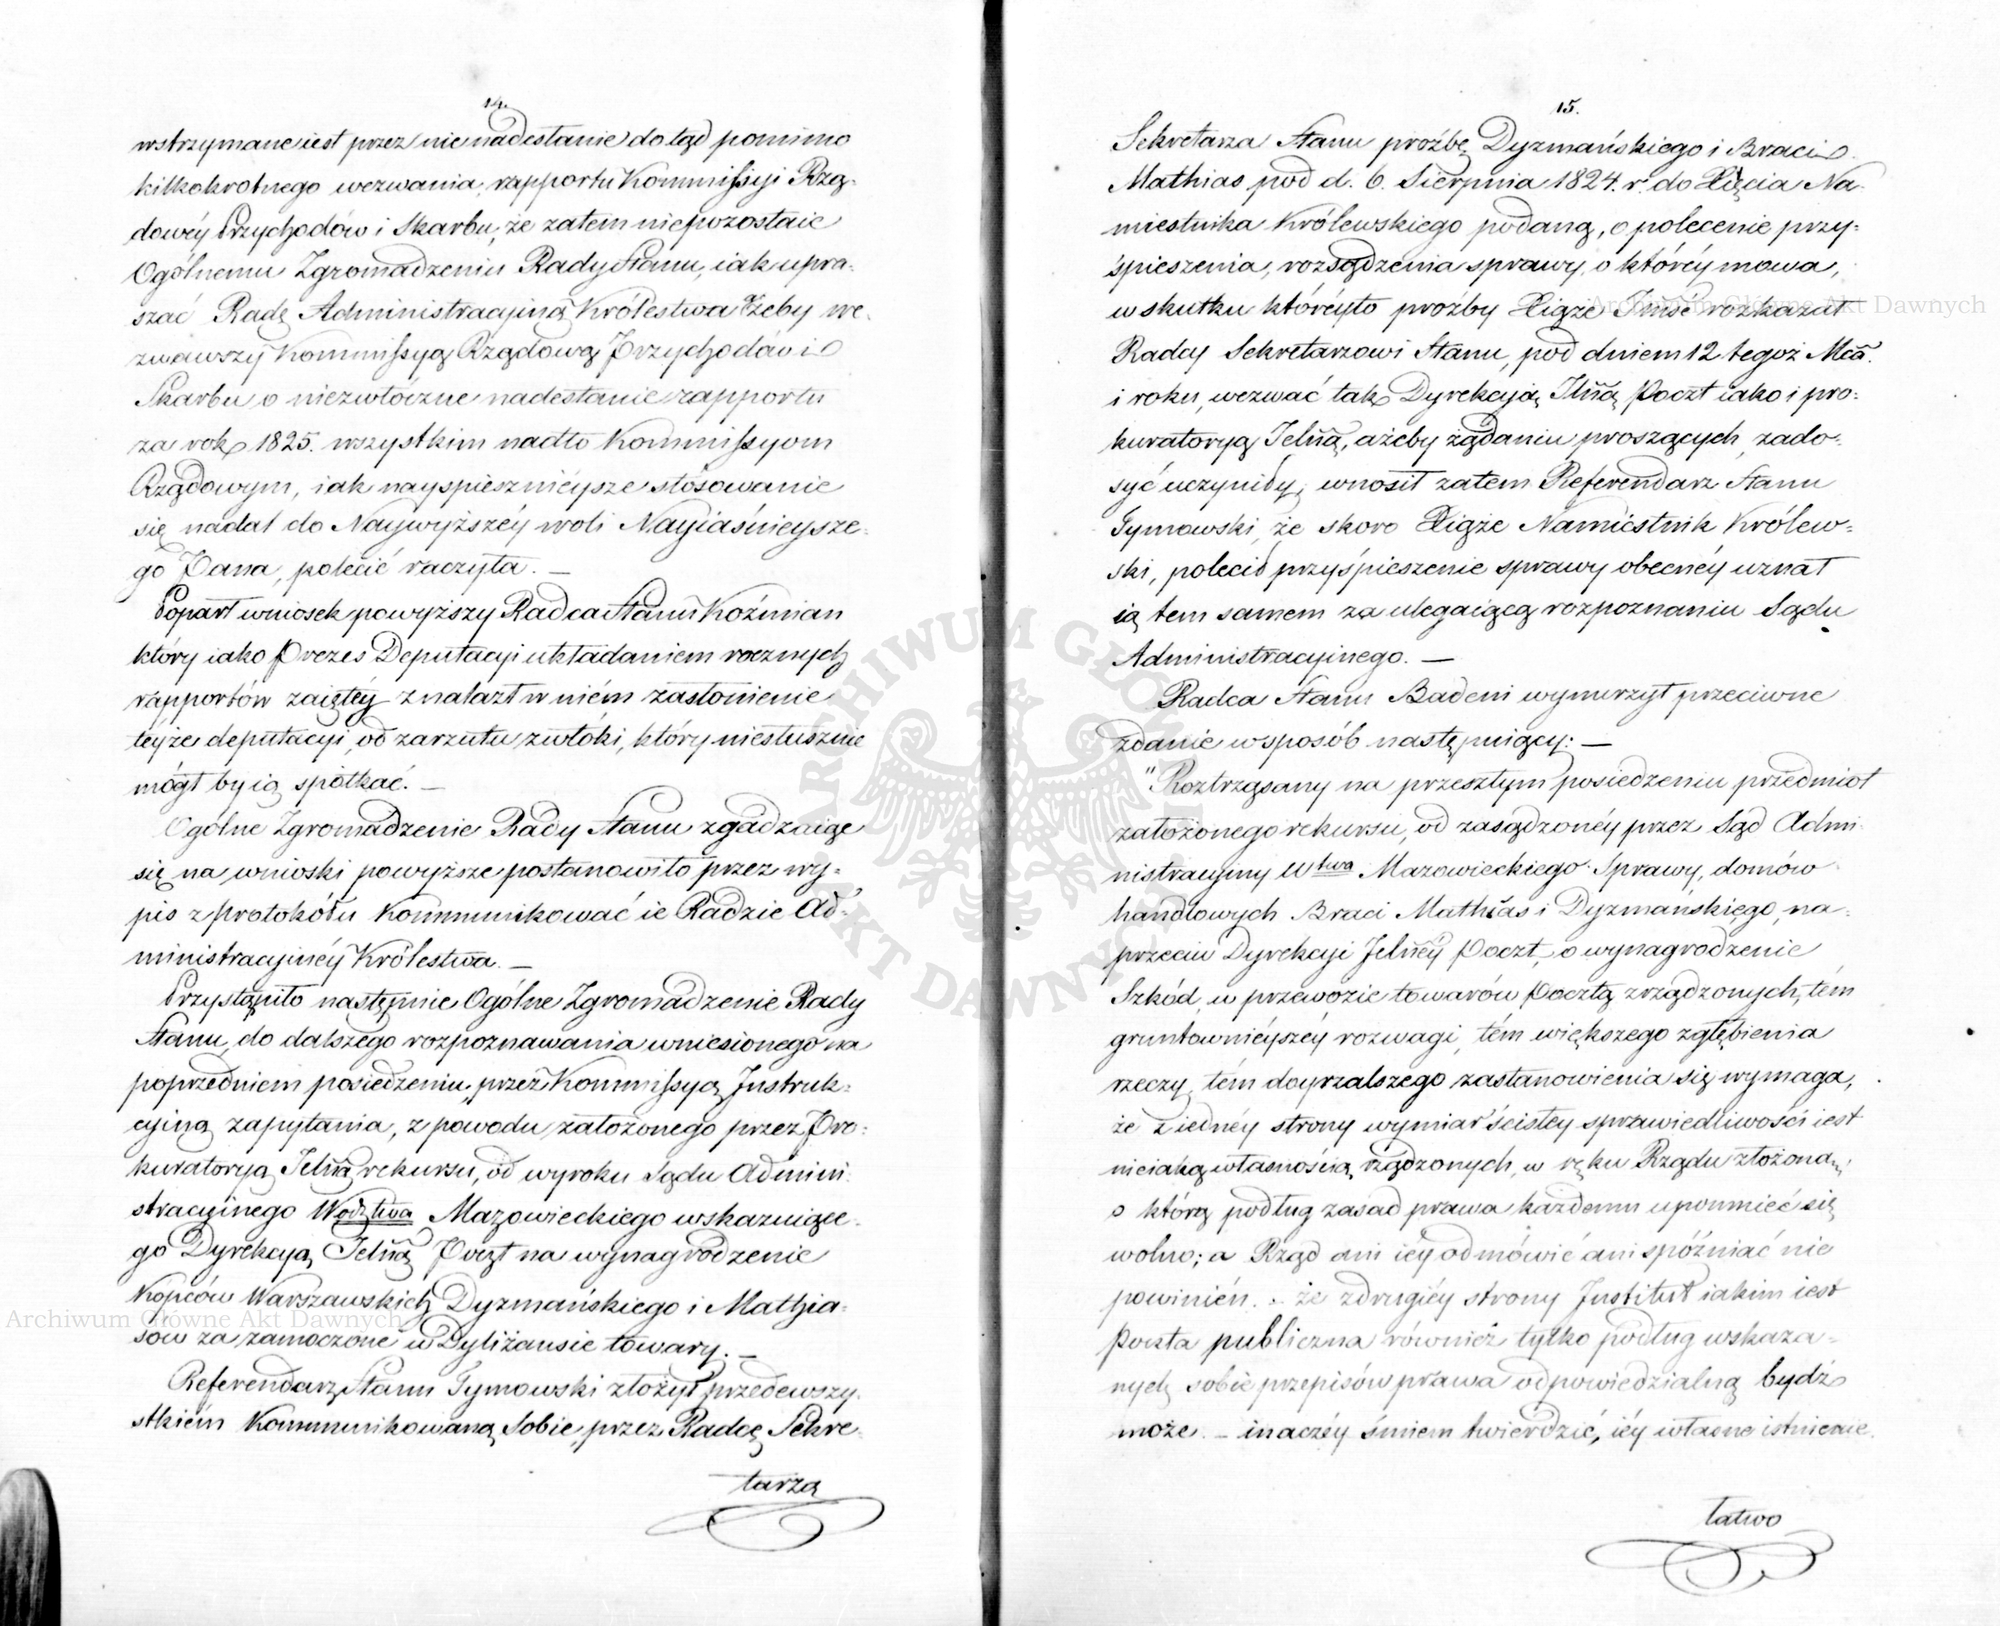 14.
wstrzymane iest przez nie nadesłanie do tąd pomimo
kilkokrotnego wezwania, rapportu Kommissyi Rzą-
dowéy Przychodów i Skarbu, że zatem nie pozostaie
Ogólnemu Zgromadzeniu Rady Stanu, iak upra-
szać Radę Administracyiną Królestwa żeby we-
zwawszy Kommissyą Rządową Przychodów i
Skarbu o niezwłóczne nadesłanie rapportu
za rok 1825. wszystkim nadto Kommissyom
Rządowym, iak nayspiesznieysze stósowanie
się nadal do Naywyższéy woli Nayiaśnieysze-
go Pana, polecić raczyła. —
Poparł wniosek powyższy Radca Stanu Koźmian
który iako Prezes Deputacyi układaniem rocznych
rapportów zaiętéy znalazł w niém zasłonienie
téyże deputacyi, od zarzutu zwłóki, który niesłusznie
mógł by ią spotkać. —
Ogólne Zgromadzenie Rady Stanu zgadzaiąc
się na wnioski powyższe postanowiło przez wy-
pis z protokółu Kommunikować ie Radzie Ad-
ministracyinéy Królestwa. —
Przystąpiło następnie Ogólne Zgromadzenie Rady
Stanu, do dalszego rozpoznawania wniesionego na
poprzedniem posiedzeniu, przez Kommissyą Instruk-
cyiną zapytania, z powodu założonego przez Pro-
kuratoryą Jelną rekursu, od wyroku Sądu Admini-
stracyinego Wodztwa Mazowieckiego wskazuiące-
go Dyrekcyą Jelną Poczt na wynagrodzenie
Kupców Warszawskich Dyzmańskiego i Mathia-
sów za zamoczone w Dyliżansie towary. —
Referendarz Stanu Tymowski złożył przedewszy-
stkiém Kommunikowaną Sobie, przez Radcę Sekre-
tarza
15.
Sekretarza Stanu proźbę Dyzmańskiego i Braci
Mathias pod d. 6. Sierpnia 1824. r. do Xięcia Na-
miestnika Królewskiego podaną, o polecenie przy-
śpieszenia, rozsądzenia sprawy, o któréy mowa,
w skutku któréyto proźby Xiąże Jmść rozkazał
Radcy Sekretarzowi Stanu, pod dniem 12 tegoż Mca
i roku, wezwać tak Dyrekcyią Jlną Poczt iako i pro-
kuratoryą Jelną, ażeby żądaniu proszących, zado-
syć uczyniły; wnosił zatem Referendarz Stanu
Tymowski, że skoro Xiąże Namiéstnik Królew-
ski, polecił przyśpieszenie sprawy obecnéy uznał
ią tem samem za ulegaiącą rozpoznaniu Sądu
Administracyinego. —
Radca Stanu Badeni wynurzył przeciwne
zdanie w sposób następuiący: —
"Roztrząsany na przeszłym posiedzeniu przedmiot
założonego rekursu, od zasądzonéy przez Sąd Admi-
nistracyiny Wtwa Mazowieckiego Sprawy, domów
handlowych Braci Mathias i Dyzmanskiego, na-
przeciw Dyrekcyi Jelnéy Poczt, o wynagrodzenie
Szkód, w przewozie towarów Pocztą zrządzonych, tém
gruntownieyszéy rozwagi, tém większego zgłębienia
rzeczy, tém doyrzalszego zastanowienia się wymaga,
że z iednéy strony wymiar ścisłey sprawiedliwości iest
nieiaką własnością rządzonych, w ręku Rządu złożoną,
o którą podług zasad prawa każdemu upomnieć się
wolno; a Rząd ani iéy odmówić ani spóźniać nie
powinien. – że z drugiéy strony Institut iakim iest
Poczta publiczna również tylko podług wskaza-
nych sobie przepisów prawa odpowiedzialną bydź
może. – inaczéy śmiem twierdzić, iéy własne istnienie
łatwo
Archiwum Główne Akt Dawnych
Archiwum Główne Akt Dawnych
ARCHIWUM GŁÓWNE
AKT DAWNYCH